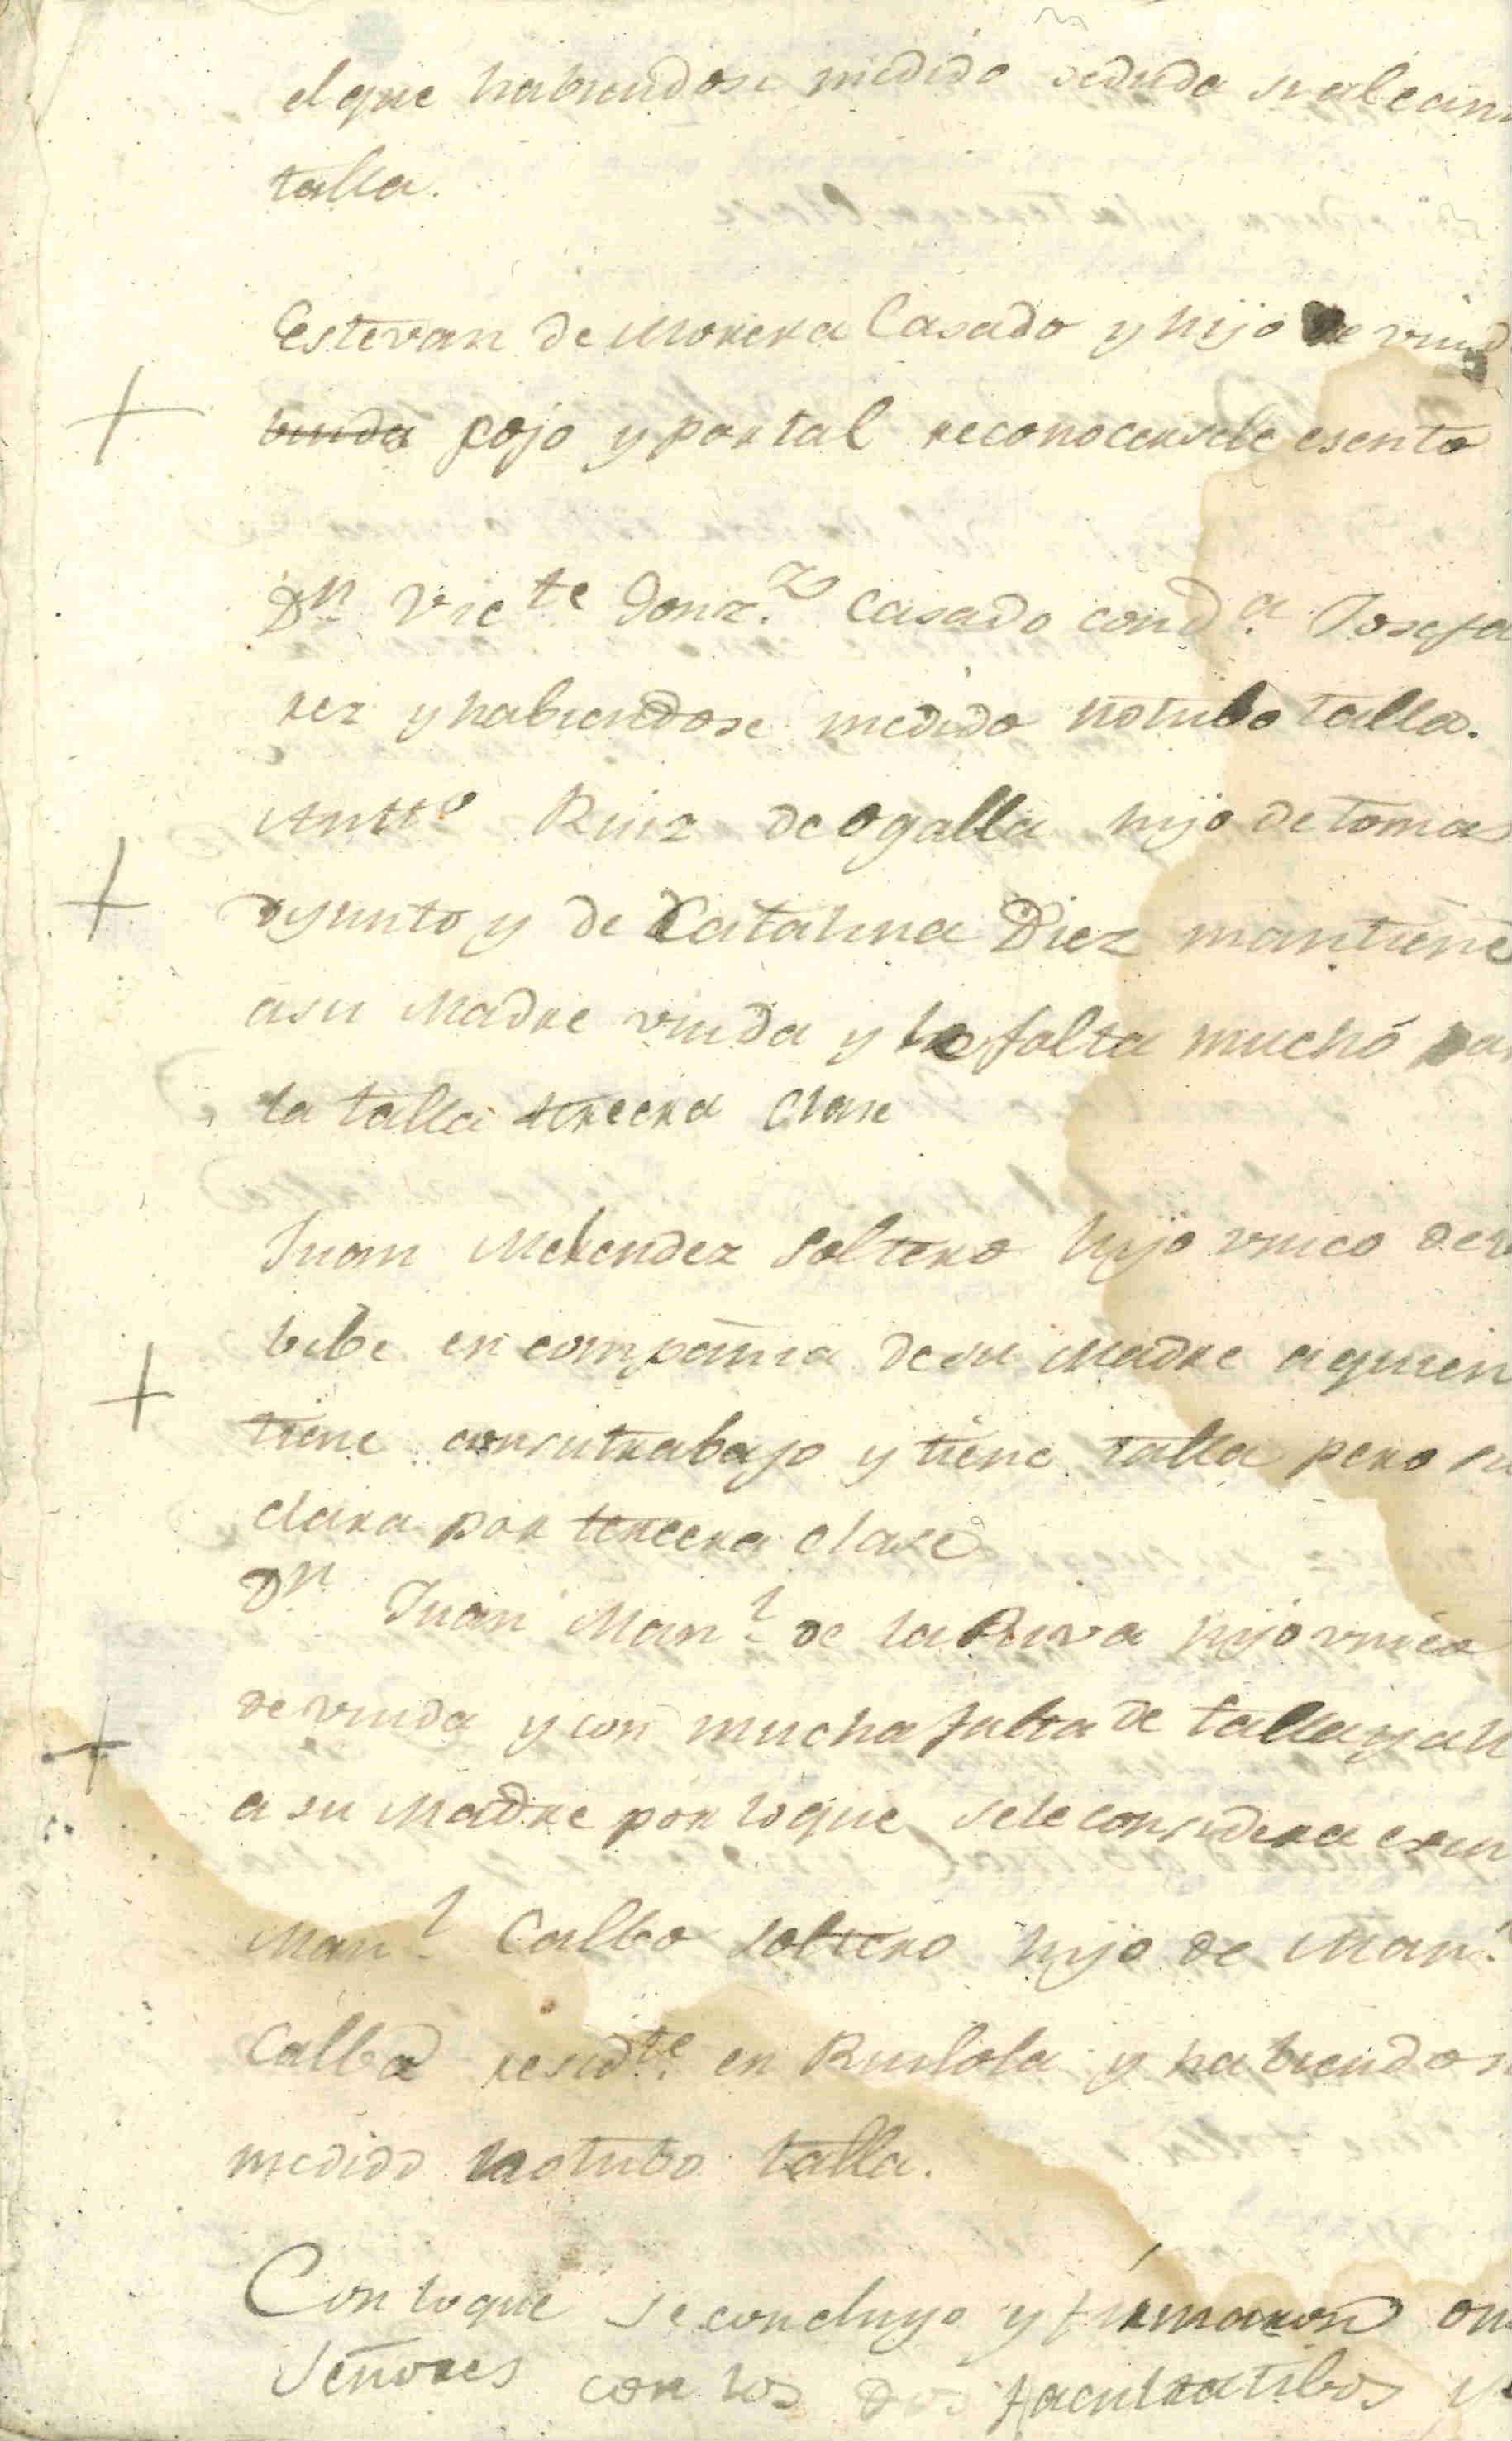 el que habiendose medido seduda si alcan
talla.
Estevan de Morera Casado y hijo de viud
viuda cojo y por tal reconocersele esento
Dn Victe Gonz.z Casado con da. Josefa
rez y habiendose medido no tubo talla.
Antto Ruiz de ogalla hijo de tomas
dijunto y de Catalina Diez mantiene
a su Madre viuda y le falta mucho pa
la talla tercera Clase
Juan Melendez Soltero hijo vnico de v
bibe en compañia de su Madre a quien
tiene con su trabajo y tiene talla pero se
clara por tercera clase
Dn Juan Manl de la Riva hijo vnico
de viuda y con mucha falta de talla y ali
a su Madre por lo que se le considera exen
Manl Calbo soltero hijo de Manl
Calbo residte en Ruiloba y habiendos
medido no tubo talla.
Con lo que se concluyo y firmaron
Señores con los dos facultatibos y